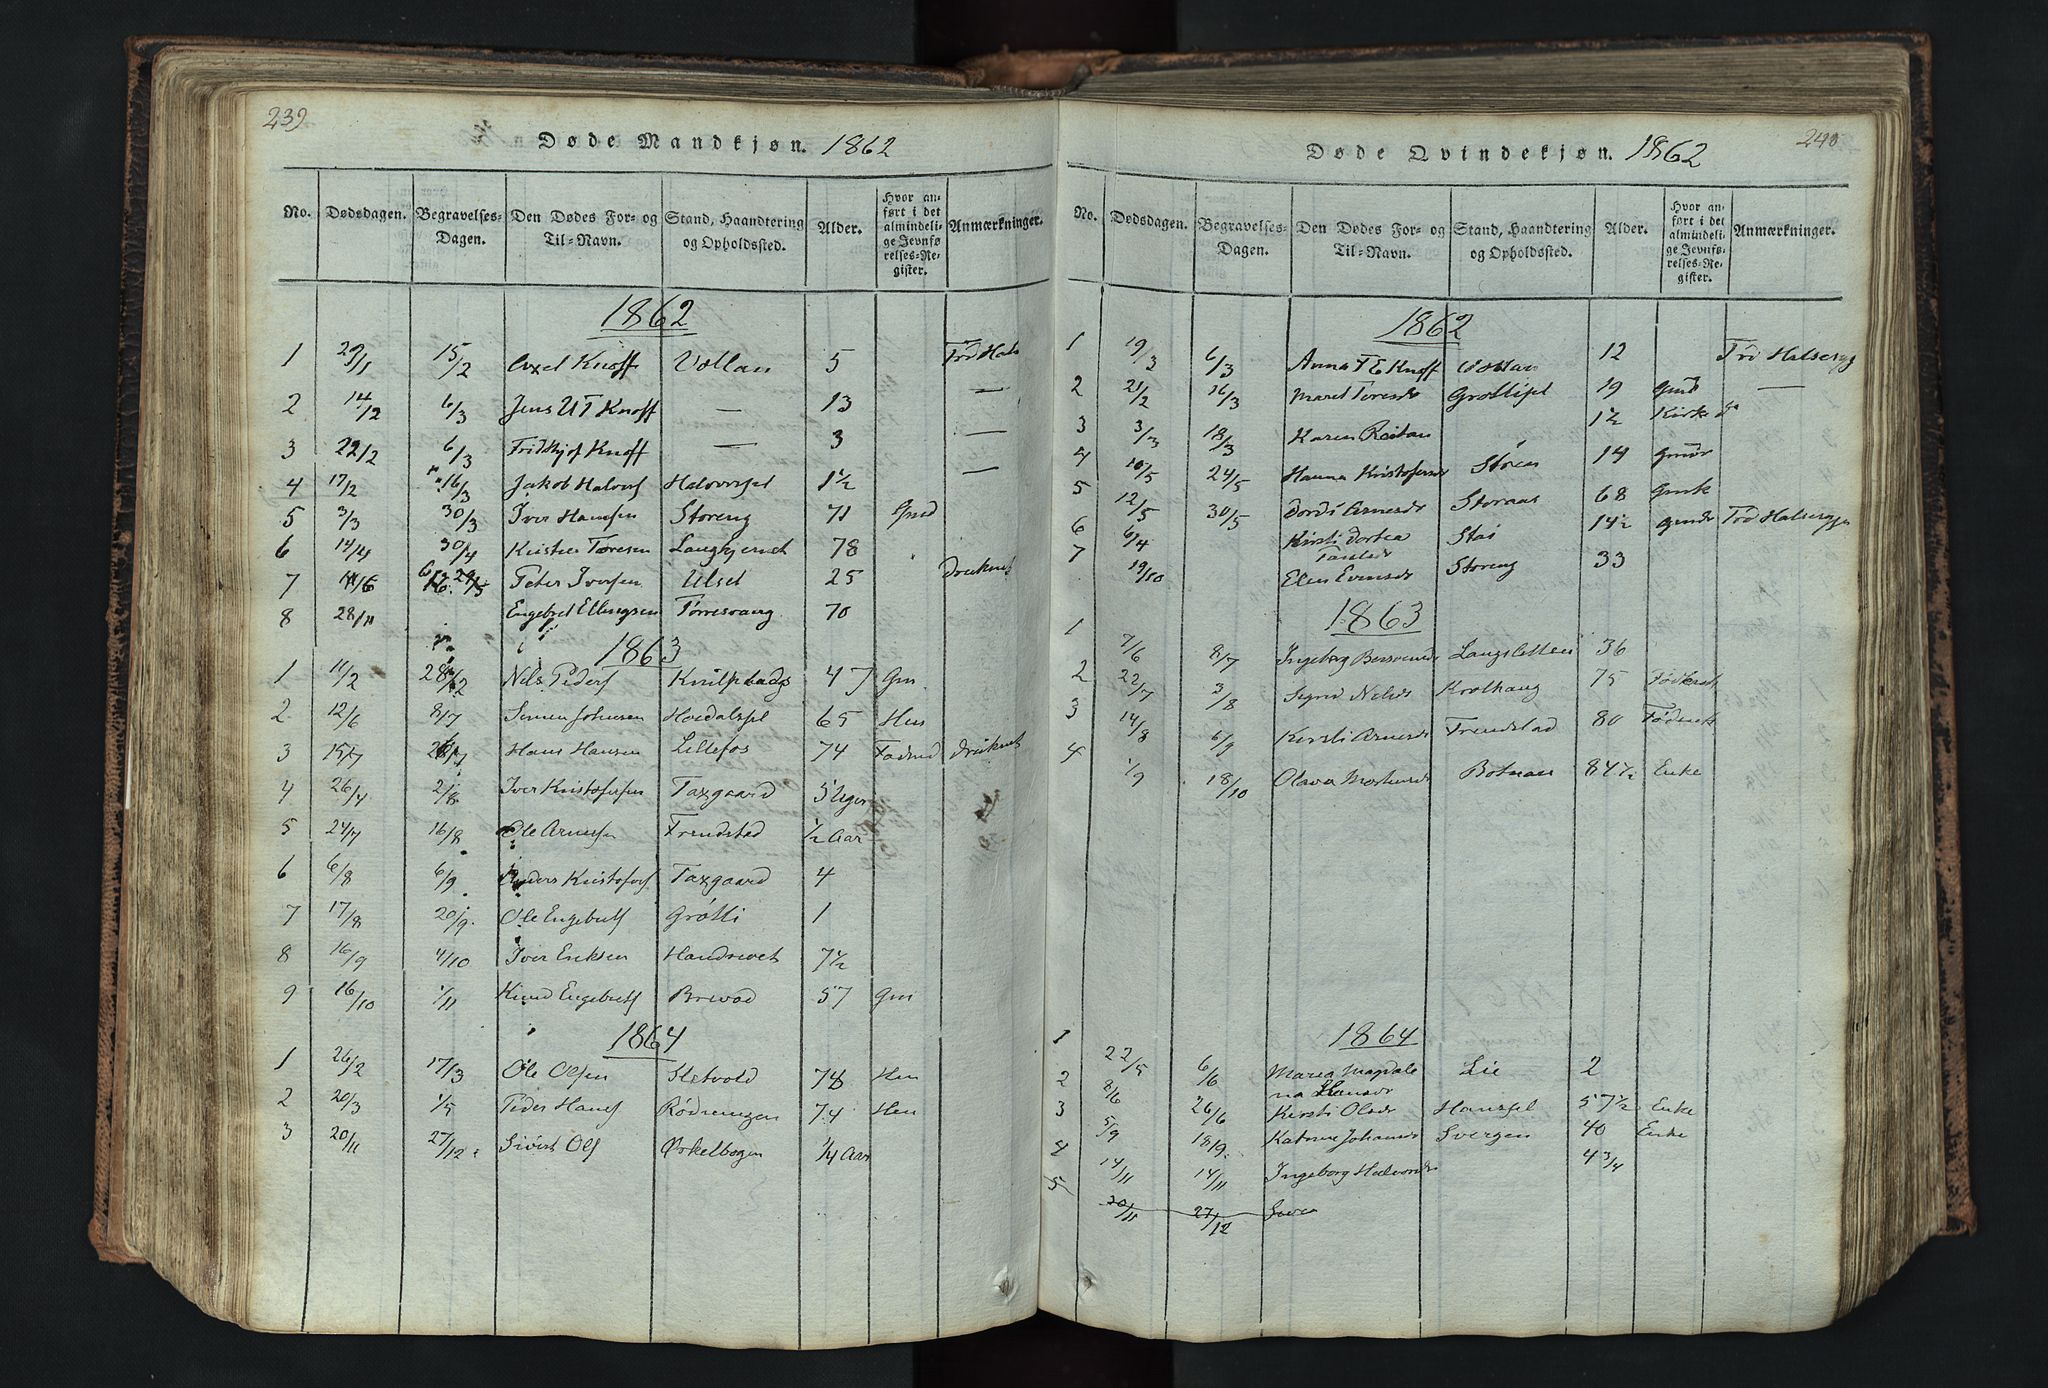 239
Døde Mandkjøn. 1862
No. Dødsdagen. Begravelses-Dagen. Den Dødes For- og Til-Navn. Stand, Haandtering og Opholdssted. Alder. Hvor anført i det almindelige Jevnførelses-Register. Anmærkninger.
1862
1 29/1 15/2 Axel Knoff Vollan 5
2 14/2 6/3 Jens Knoff — 13 —
3 22/2 6/3 Fridthjof Knoff — 3 —
4 17/2 16/3 Jakob Halvors Halvorset 1½ —
5 3/3 30/3 Iver Hansen Storeng 71
6 14/4 30/4 78
7 Peter Iversen Ulset 25 druknet
8 28/11 Engebret Ellingsen 70
1863
1 11/2 28/2 Nils Peders 47 Gm
2 12/6 8/7 Simen Johnsen 65
3 15/7 Hans Hansen Lillefos 74 druknet
4 26/7 2/8 Iver Kristofersen Taxgaard 5 Uger
5 24/7 16/8 Ole Arnesen Frendstad ½ Aar
6 6/8 6/9 Anders Kristofers Taxgaard 4
7 17/8 20/9 Ole Engebrets Grøtli 1
8 16/9 4/10 Iver Eriksen 7½
9 16/10 1/11 Knud Engebrets 57 Gm
1864
1 26/2 17/3 Ole Olsen Sletvold 78
2 20/3 1/5 Peder Hans 74
3 20/11 27/12 Sivert Ols Ørkelbogen ¼ Aar
240
Døde Qvindekjøn. 1862
No. Dødsdagen. Begravelses-Dagen. Den Dødes For- og Til-Navn. Stand, Haandtering og Opholdssted. Alder. Hvor anført i det almindelige Jevnførelses-Register. Anmærkninger.
1862
1 19/3 6/3 Anna Knoff Vollan 12
2 21/2 16/3 Maret Toresdr 19 —
3 3/3 18/3 Karen Reitan 1½
4 10/5 24/5 Hanna Kristofersdr Støren 14
5 12/5 30/5 Dordi Arnesdr Storaas 68
6 6/4 Kirsti Dortea 14½
7 19/10 Elen Evensdr Storeng 33
1863
1 7/6 8/7 Ingeborg Langsletten 36
2 22/7 3/8 Sigrid Nilsdr 75
3 14/8 6/9 Kirsti Arnesdr Frendstad 80
4 1/9 18/10 Olava Botnan 84½ Enke
1864
1 22/5 6/6 Maren Magdale Lie 2
na Hansdr
2 8/6 26/6 Kirsti Olsdr 57½ Enke
3 5/9 18/9 Katrine Johansdr 40 Enke
4 14/11 14/11 Ingeborg Halvorsdr 4¾
5 20/11 27/12